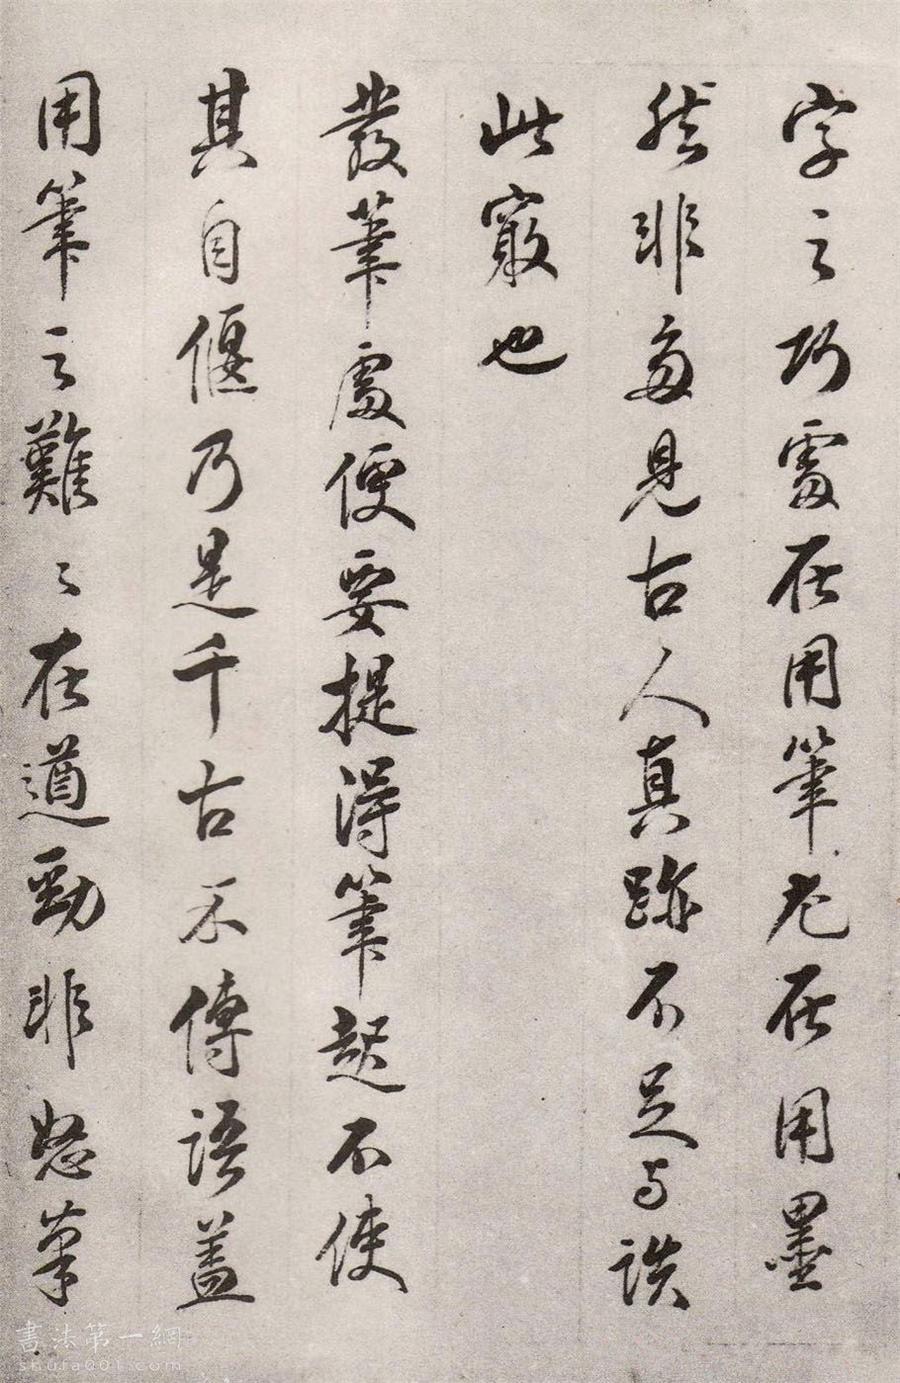 字之巧處在用筆尤在用墨
然非多見古人真跡不足与談
此竅也
發筆處便要提得筆起不使
其自偃乃是千古不傳語蓋
用筆之難〻在遒勁非怒筆
書法第一網
shufa001.com